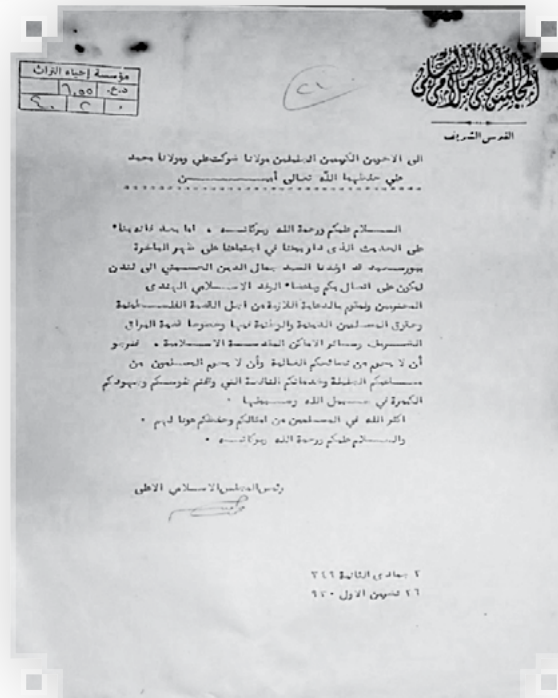 المجلس الإسلامي الأعلى
القدس الشريف
مؤسسة إحياء التراث
الى الاخوين الكريمين الجليلين مولانا شوكت علي ومولانا محمد
علي حفظهما الله تعالى آمين
السلام عليكم ورحمة الله وبركاته ، اما بعد فانه بناء
على الحديث الذي دار بيننا في اجتماعنا على ظهر الباخرة
ببورسعيد قد اوفدنا السيد جمال الدين الحسيني الى لندن
ليكون على اتصال بكم وباعضاء الوفد الاسلامي الهندي
المحترمين وليقوم بالدعاية اللازمة من اجل القضية الفلسطينية
وحقوق المسلمين الدينية والوطنية فيها وخصوصا قضية البراق
الشريف وسائر الاماكن المقدسة الاسلامية ، فنرجو
أن لا يحرم من نصائحكم الغالية وأن لا يحرم المسلمون من
مساعيكم الجليلة وخدماتكم الغالية التي وقفتم نفوسكم وجهودكم
الكبيرة في سبيل الله
اكثر الله في المسلمين من امثالكم وحفظكم عونا لهم .
والسلام عليكم ورحمة الله وبركاته .
رئيس المجلس الاسلامي الاعلى
٢ جمادى الثانية ٣٤٩
٢٦ تشرين الاول ٩٣٠